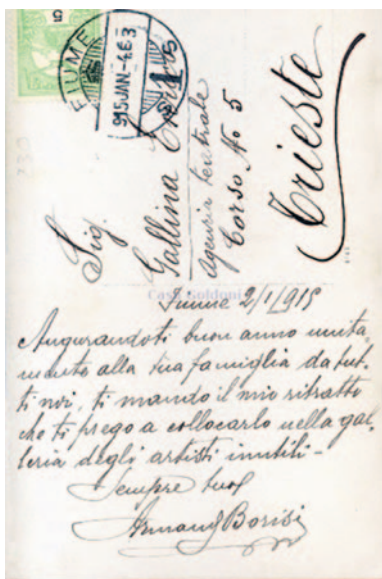 5
FIUME
915 JAN. -4. E 3
Sig.
Gallina
Agenzia teatrale
Corso No 5
Trieste
Casa Goldoni
Fiume 2/1/915
Augurandoti buon anno unita-
mente alla tua famiglia da tut-
ti noi, ti mando il mio ritratto
che ti prego a collocarlo nella gal-
leria degli artisti inutili -
Sempre tuo
Armando Borisi